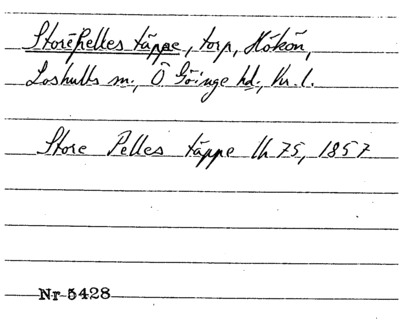 StorePelles täppe, torp, Hökön,
Loshults sn., Ö Göinge hd., Kr. l.
Store Pelles täppe lh 75, 1857
Nr 5428